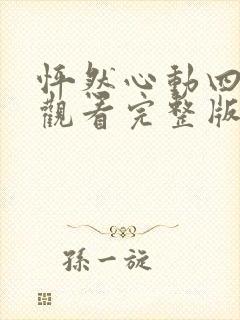 怦然心動四
觀看完整版
孫一旋